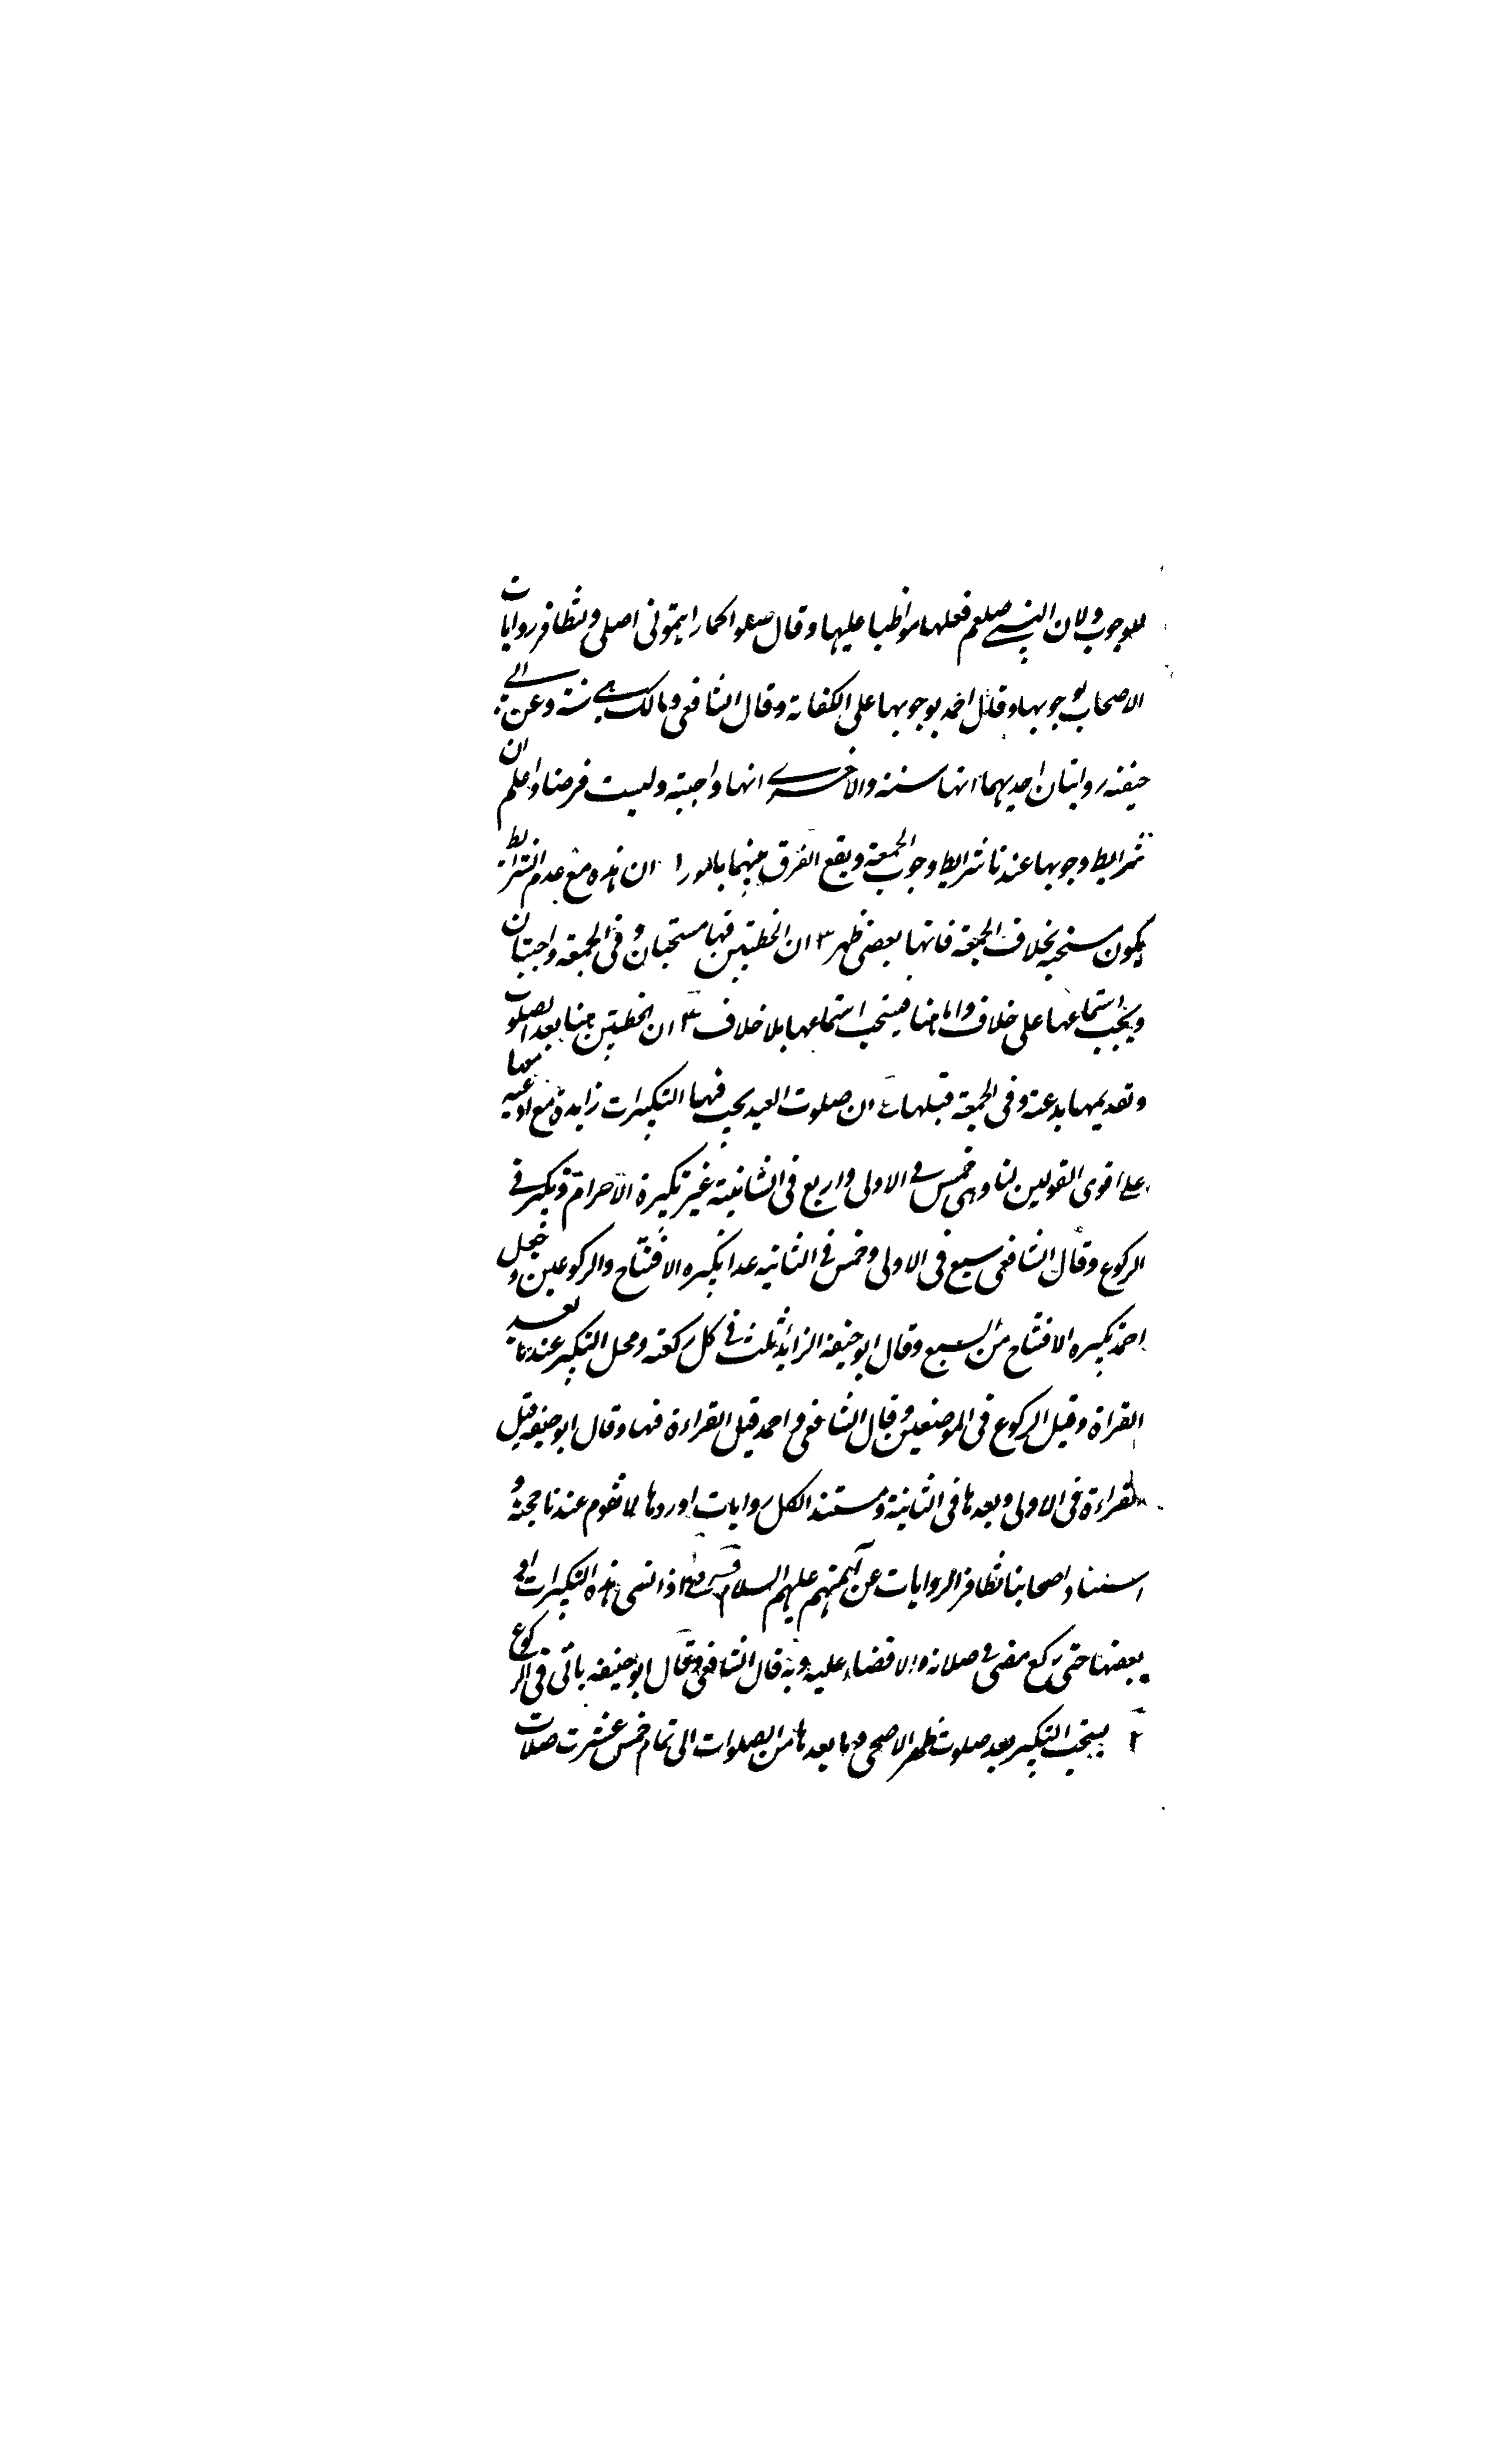 للوجوب ولان النبي صلعم فعلها مواظبا عليها وقال صلوا كما رايتموني اصلي ولتظافر روايات
الاصحاب بوجوبها وقال احمد بوجوبها على الكفاية وقال الشافعي ومالك هي سنة وعن ابي
حنيفه روايتان احديهما انها سنة والاخرى انها واجبة وليست فرضا واعلم ان
شرايط وجوبها عندنا شرايط وجوب الجمعة ويقع الفرق بينهما بامور ا ان هذه مع عدم الشرايط
يكون مستحبه بخلاف الجمعة فانها ظهر ٢ ان الخطبتين فيها مستحبان وفي الجمعة واجبتان
ويجب استماعها على خلاف واما هنا فيستحب استماعها بلا خلاف ٣ ان الخطبتين هنا بعد الصلوة
وتقديمها بدعة وفي الجمعة قبلها ٤ ان صلوة العيد يجب فيها التكبيرات زايدة مع ادعيه معها
على اقوى القولين لنا وهي خمس في الاولى واربع في الثانية غير تكبيرة الاحرام وتكبير في
الركوع وقال الشافعي سبع في الاولى وخمس في الثانيه عدا تكبيره الافتتاح والركوعين وجعل
احمد تكبيره الافتتاح من السبع وقال ابو حنيفة الزايد ثلث في كل ركعة ومحل التكبير عندنا بعد
القراة وقبل الركوع في الموضعين وقال الشافعي واحمد قبل القراءة فيها وقال ابو حنيفه قبل
القراءة في الاولى وبعدها في الثانية ومستند الكل روايات اوردها لا تقوم عندنا حجة و
استناد اصحابنا تظافر الروايات عن ائمتهم عليهم السلام اذا نسي هذه التكبيرات او
بعضها حتى ركع مضى في صلاته ولا قضاء عليه وبه قال الشافعي وقال ابو حنيفه ياتي في الركوع
٢ يستحب التكبير بعد صلوة ظهر الاضحى وما بعدها من الصلوات الى تمام خمس عشرة صلاة